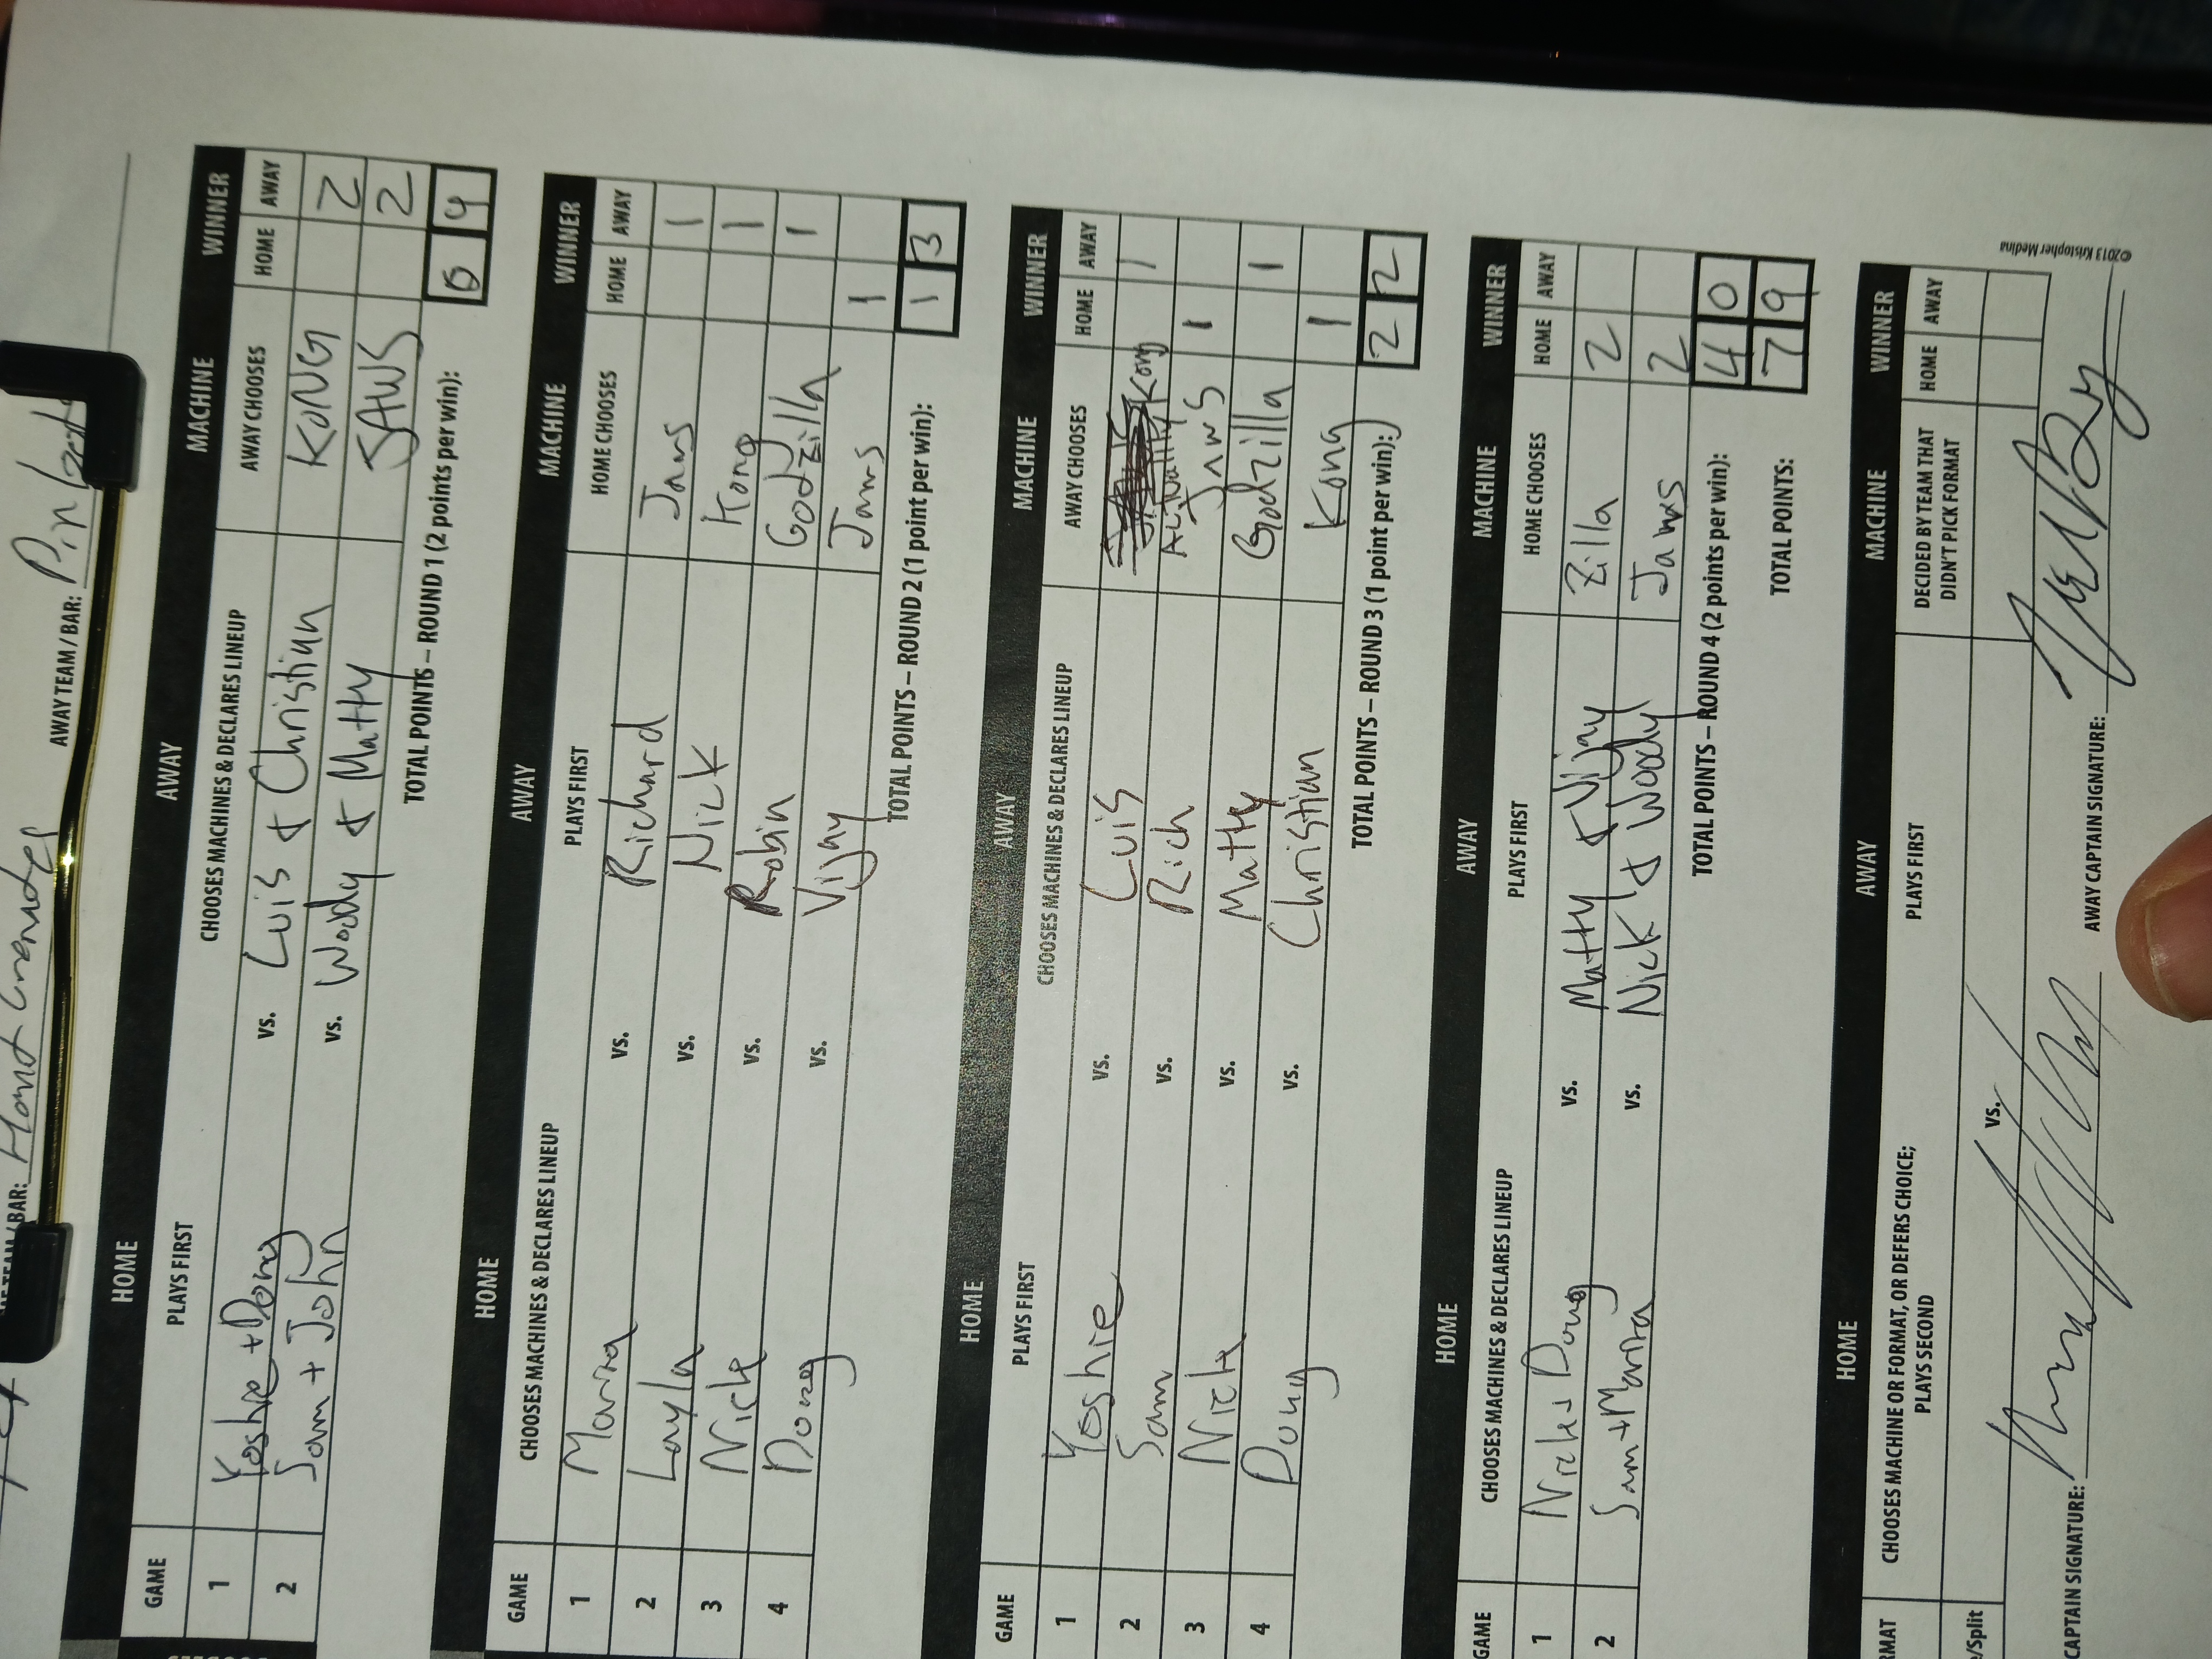 TEAM/BAR: Hand Grenades AWAY TEAM / BAR: Pin
HOME AWAY MACHINE WINNER
GAME PLAYS FIRST CHOOSES MACHINES & DECLARES LINEUP AWAY CHOOSES HOME AWAY
1 Yoshie + Doug vs. Luis & Christian KONG 2
2 Sam + John vs. Woody & Matty JAWS 2
TOTAL POINTS – ROUND 1 (2 points per win): 0 4
HOME AWAY MACHINE WINNER
GAME CHOOSES MACHINES & DECLARES LINEUP PLAYS FIRST HOME CHOOSES HOME AWAY
1 Marra vs. Richard Jaws 1
2 Layla vs. Nick Kong 1
3 Nick vs. Robin Godzilla 1
4 Doug vs. Vijay Jaws 1
TOTAL POINTS – ROUND 2 (1 point per win): 1 3
HOME AWAY MACHINE WINNER
GAME PLAYS FIRST CHOOSES MACHINES & DECLARES LINEUP AWAY CHOOSES HOME AWAY
1 Yoshie vs. Luis Kong 1
2 Sam vs. Rich Actually Jaws 1
3 Nick vs. Matty Godzilla 1
4 Doug vs. Christian Kong 1
TOTAL POINTS – ROUND 3 (1 point per win): 2 2
HOME AWAY MACHINE WINNER
GAME CHOOSES MACHINES & DECLARES LINEUP PLAYS FIRST HOME CHOOSES HOME AWAY
1 Nick + Doug vs. Matty & Vijay Zilla 2
2 Sam + Marra vs. Nick & Woody Jaws 2
TOTAL POINTS – ROUND 4 (2 points per win): 4 0
TOTAL POINTS: 7 9
HOME AWAY MACHINE WINNER
RMAT CHOOSES MACHINE OR FORMAT, OR DEFERS CHOICE; PLAYS SECOND PLAYS FIRST DECIDED BY TEAM THAT DIDN'T PICK FORMAT HOME AWAY
/Split vs.
CAPTAIN SIGNATURE: AWAY CAPTAIN SIGNATURE:
©2013 Kristopher Medina